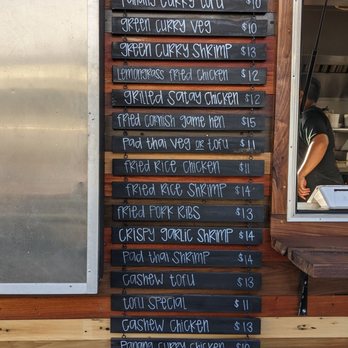 panang curry tofu $10
green curry veg $10
green curry shrimp $13
lemongrass fried chicken $12
grilled satay chicken $12
fried cornish game hen $15
pad thai veg or tofu $11
fried rice chicken $11
fried rice shrimp $14
fried pork ribs $13
crispy garlic shrimp $14
pad thai shrimp $14
cashew tofu $13
tofu special $11
cashew chicken $13
panang curry chicken $10